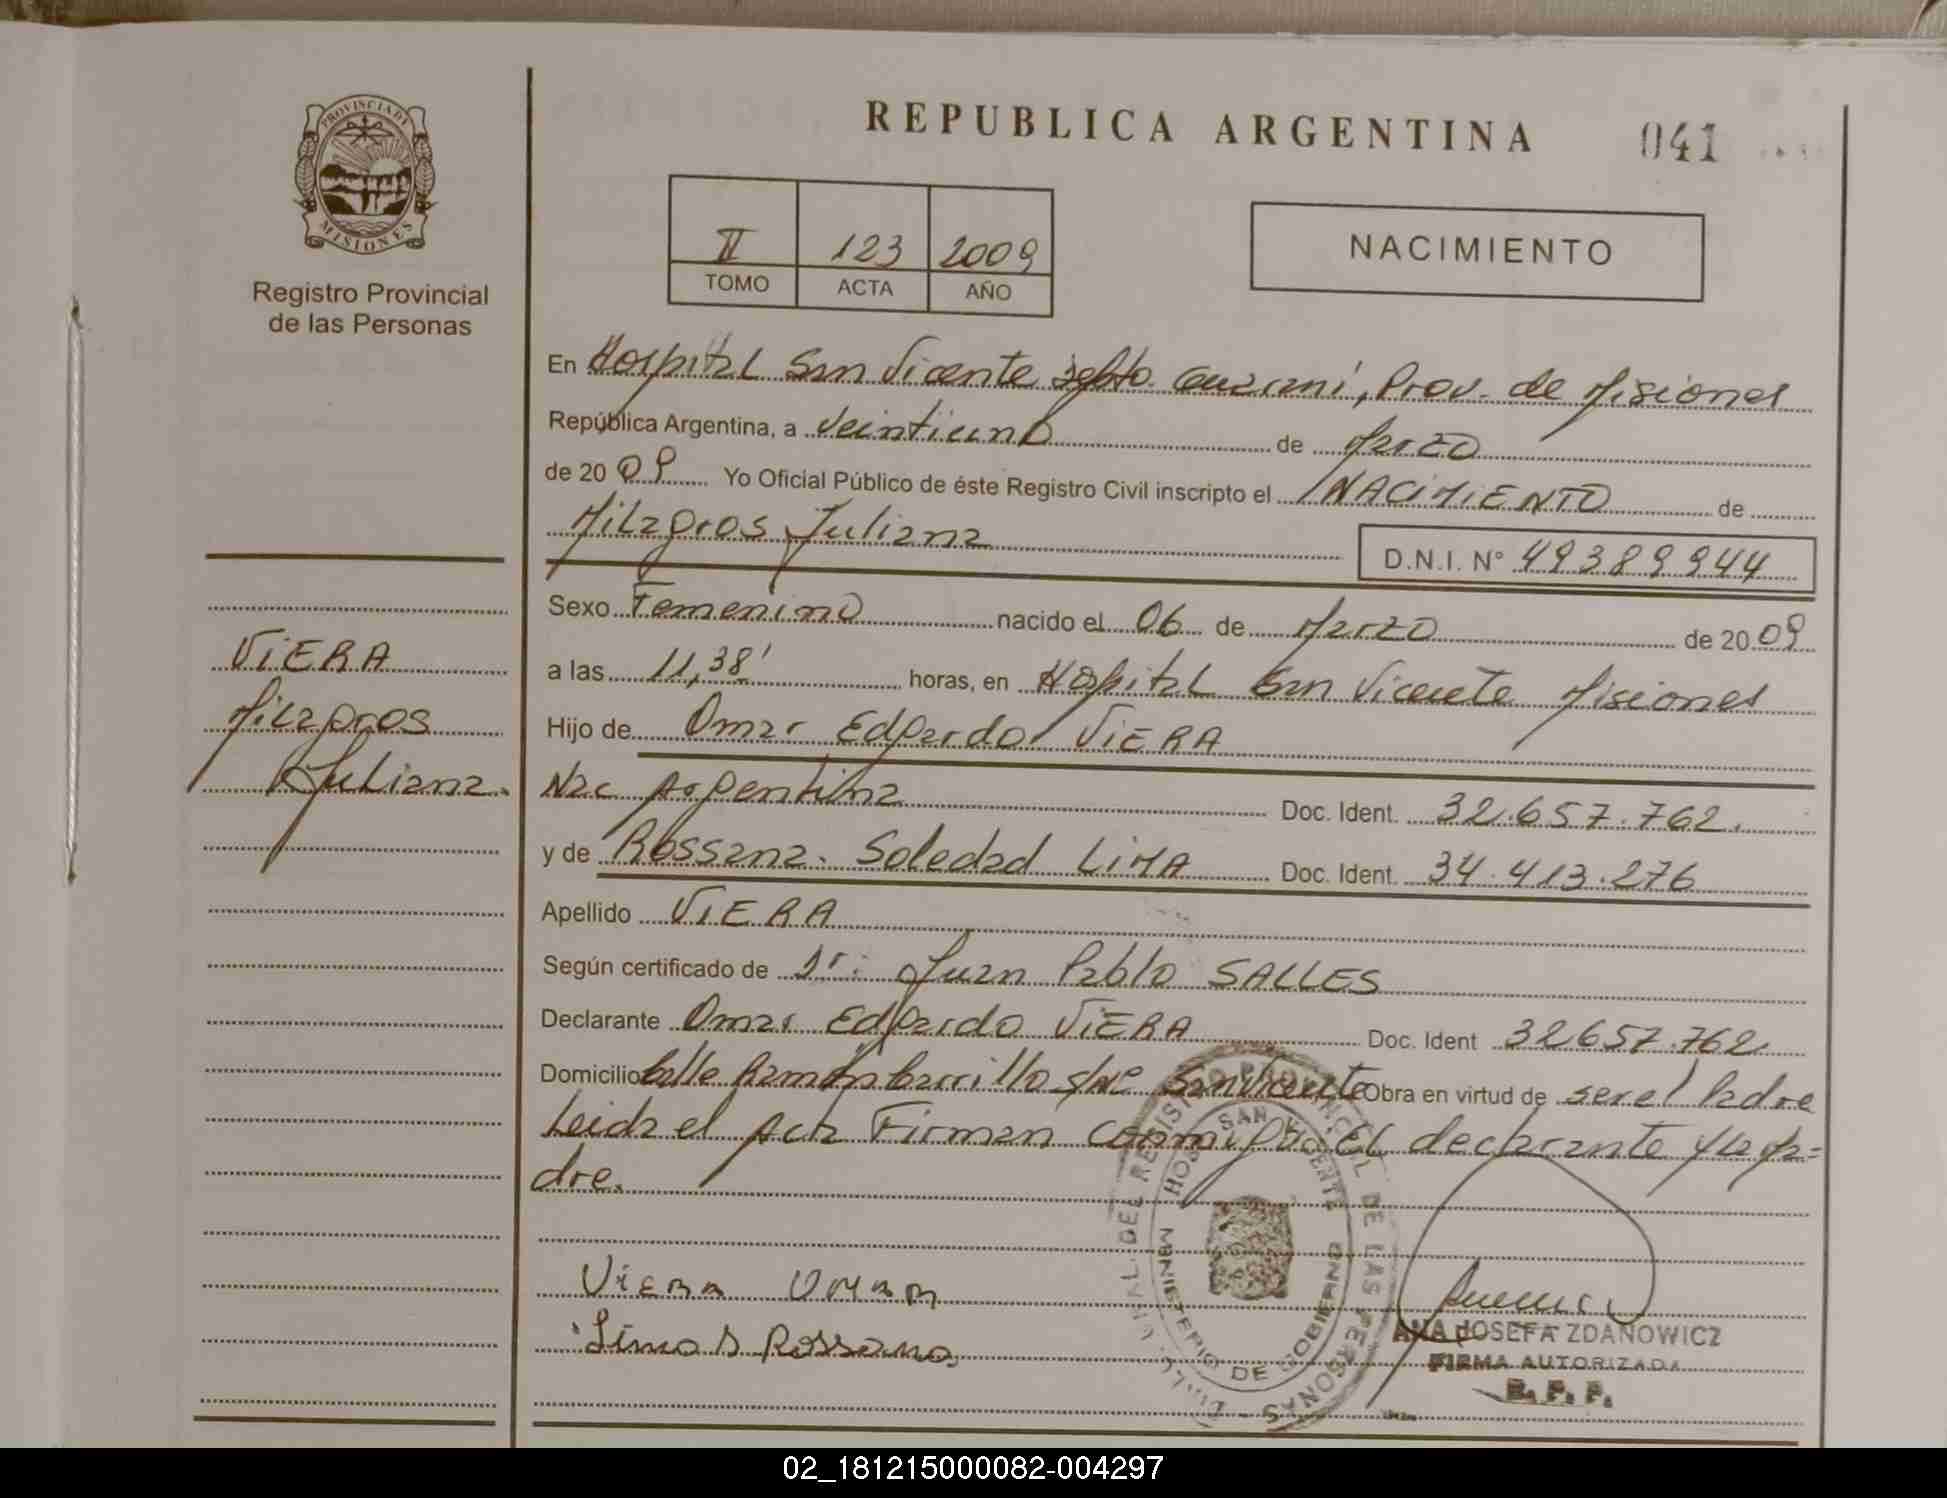 REPUBLICA ARGENTINA
041
PROVINCIA DE
MISIONES
Registro Provincial
de las Personas
II 123 2009
TOMO ACTA AÑO
NACIMIENTO
En Hospital San Vicente Dpto. Guaraní, Prov. de Misiones
República Argentina, a veintiuno de Marzo
de 20 09 Yo Oficial Público de éste Registro Civil inscripto el NACIMIENTO de
Milagros Juliana D.N.I. Nº 49389944
Sexo Femenino nacido el 06 de Marzo de 20 09
a las 11,38' horas, en Hospital San Vicente Misiones
Hijo de Omar Edgardo VIERA
Nac Argentina Doc. Ident. 32.657.762.
y de Rossana Soledad LIMA Doc. Ident. 34.413.276
Apellido VIERA
Según certificado de Dr. Juan Pablo SALLES
Declarante Omar Edgardo VIERA Doc. Ident 32657.762
Domicilio Calle Ramón Carrillo s/nº San Vicente Obra en virtud de ser el Padre
Leida el Acta Firman conmigo El declarante y la Ma=
dre.
VIERA
Milagros
Juliana.
Viera Omar
Lima S Rossana
REGISTRO PROVINCIAL DE LAS PERSONAS
HOSP SAN VICENTE
MINISTERIO DE GOBIERNO
ANA JOSEFA ZDANOWICZ
FIRMA AUTORIZADA
R. P. P.
02_181215000082-004297